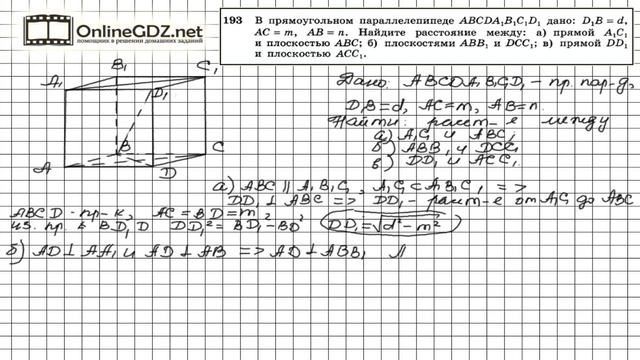 OnlineGDZ.net
помощник в решении домашних заданий
193 В прямоугольном параллелепипеде ABCDA₁B₁C₁D₁ дано: D₁B=d,
AC=m, AB=n. Найдите расстояние между: а) прямой A₁C₁
и плоскостью ABC; б) плоскостями ABB₁ и DCC₁; в) прямой DD₁
и плоскостью ACC₁.
B₁
C₁
A₁
D₁
B
C
A
D
Дано: ABCDA₁B₁C₁D₁ – пр. пар-д,
D₁B=d, AC=m, AB=n.
Найти: расст-е между
а) A₁C₁ и ABC;
б) ABB₁ и DCC₁
в) DD₁ и ACC₁.
а) ABC || A₁B₁C₁, A₁C₁ ⊂ A₁B₁C₁ =>
DD₁ ⊥ ABC => DD₁ - расст-е от A₁C₁ до ABC
ABCD - пр-к, AC=BD=m,
из. пр. ▵ BD₁D DD₁²=BD₁²-BD²
DD₁=√d²-m²
б) AD⊥AA₁ и AD⊥AB => AD⊥ABB₁